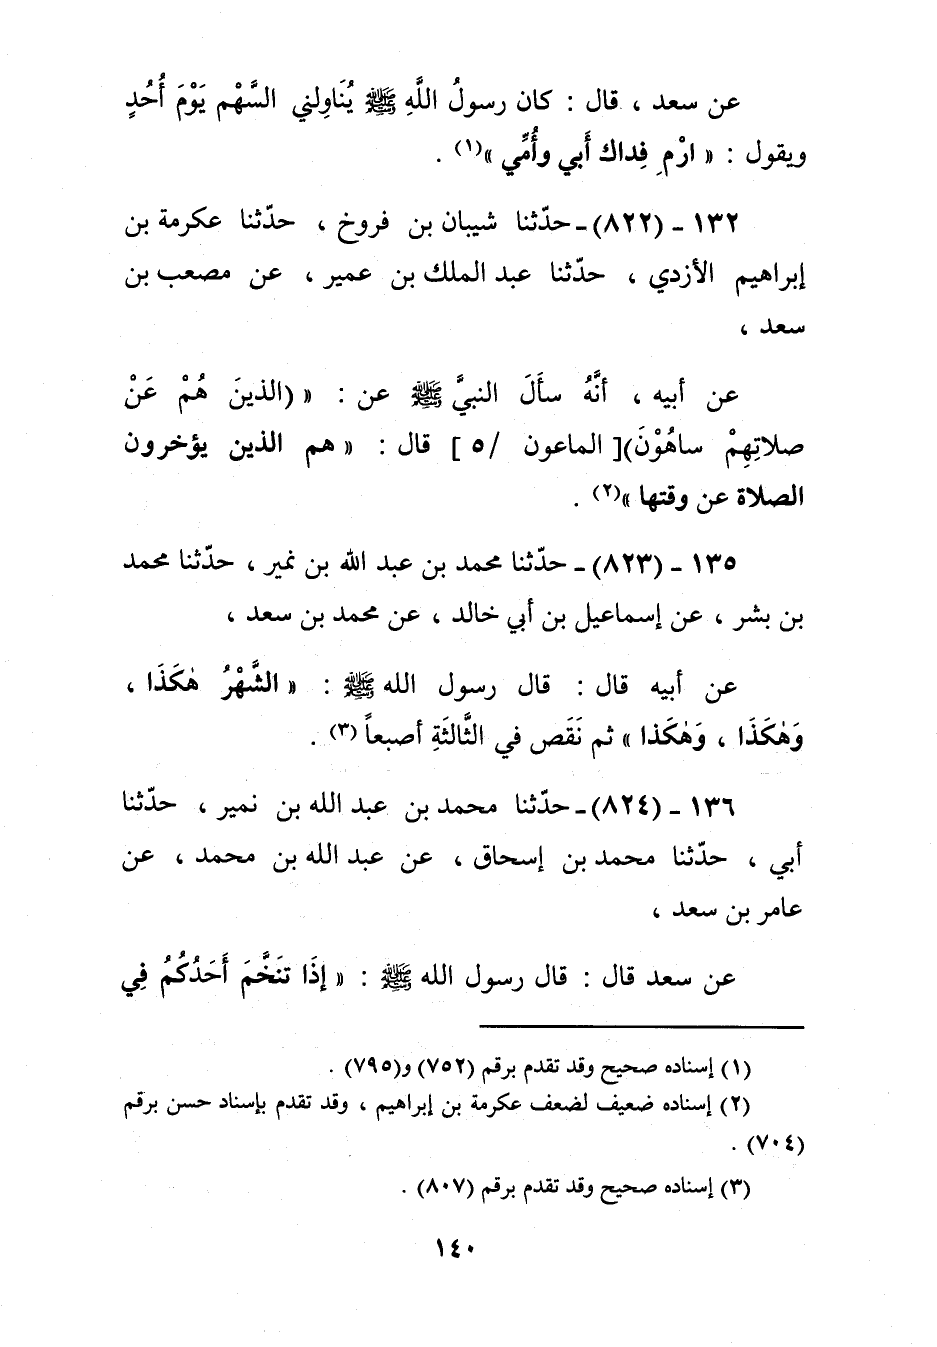 عن سعد ، قال : كان رسولُ اللَّهِ ﷺ يُنَاوِلني السَّهْم يَوْمَ أُحُدٍ
ويقول : « ارْمِ فِداك أَبي وأُمِّي »(١) .
١٣٢ ـ (٨٢٢)ـ حدّثنا شيبان بن فروخ ، حدّثنا عكرمة بن
إبراهيم الأزدي ، حدّثنا عبد الملك بن عمير ، عن مصعب بن
سعد ،
عن أبيه ، أنَّهُ سأَلَ النبيَّ ﷺ عن : « (الذينَ هُمْ عَنْ
صلاتِهِمْ ساهُوْنَ)[ الماعون /٥ ] قال : « هم الذين يؤخرون
الصلاة عن وقتها »(٢) .
١٣٥ ـ (٨٢٣)ـ حدّثنا محمد بن عبد الله بن نمير ، حدّثنا محمد
بن بشر ، عن إسماعيل بن أبي خالد ، عن محمد بن سعد ،
عن أبيه قال : قال رسول الله ﷺ : « الشَّهْرُ هٰكَذَا ،
وَهٰكَذَا ، وَهٰكَذا » ثم نَقَص في الثَّالثَةِ أصبعاً (٣) .
١٣٦ ـ (٨٢٤)ـ حدّثنا محمد بن عبد الله بن نمير ، حدّثنا
أبي ، حدّثنا محمد بن إسحاق ، عن عبد الله بن محمد ، عن
عامر بن سعد ،
عن سعد قال : قال رسول الله ﷺ : « إذَا تنَخَّمَ أَحَدُكُمُ فِي
(١) إسناده صحيح وقد تقدم برقم (٧٥٢) و(٧٩٥) .
(٢) إسناده ضعيف لضعف عكرمة بن إبراهيم ، وقد تقدم بإسناد حسن برقم
(٧٠٤) .
(٣) إسناده صحيح وقد تقدم برقم (٨٠٧) .
١٤٠